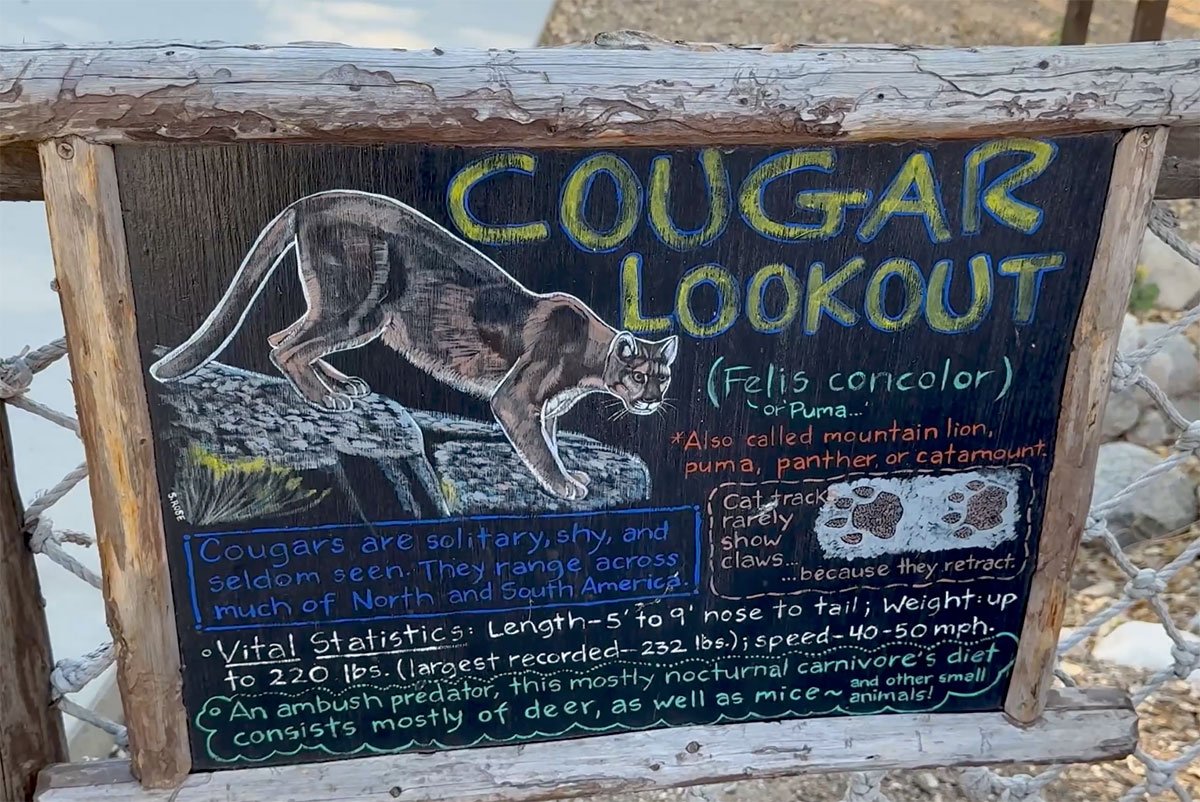 COUGAR
LOOKOUT
(Felis concolor)
or Puma...
*Also called mountain lion,
puma, panther, or catamount.
Cat tracks
rarely
show
claws...
...because they retract.
S. ROSE
Cougars are solitary, shy, and
seldom seen. They range across
much of North and South America.
Vital Statistics: Length-5' to 9' nose to tail; Weight: up
to 220 lbs. (largest recorded-232 lbs.); speed-40-50 mph.
An ambush predator, this mostly nocturnal carnivore's diet
consists mostly of deer, as well as mice~ and other small
animals!